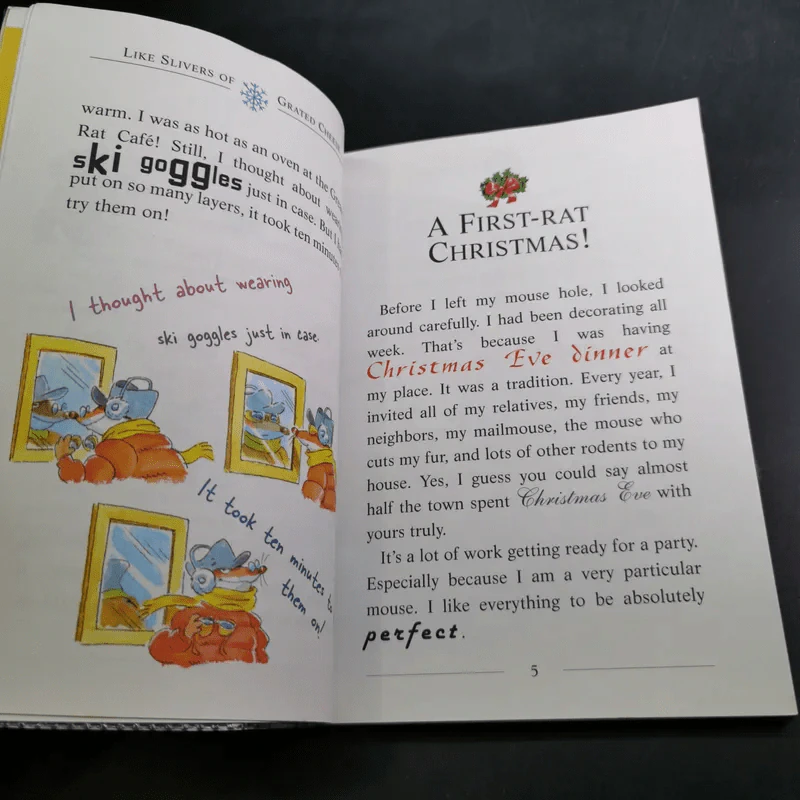 LIKE SLIVERS OF GRATED
warm. I was as hot as an oven at the
Rat Café! Still, I thought about
ski goggles just in case. But I
put on so many layers, it took ten minutes
try them on!
I thought about wearing
ski goggles just in case.
It took ten minutes
them on!
A FIRST-RAT
CHRISTMAS!
Before I left my mouse hole, I looked
around carefully. I had been decorating all
week. That's because I was having
Christmas Eve dinner at
my place. It was a tradition. Every year, I
invited all of my relatives, my friends, my
neighbors, my mailmouse, the mouse who
cuts my fur, and lots of other rodents to my
house. Yes, I guess you could say almost
half the town spent Christmas Eve with
yours truly.
It's a lot of work getting ready for a party.
Especially because I am a very particular
mouse. I like everything to be absolutely
perfect.
5